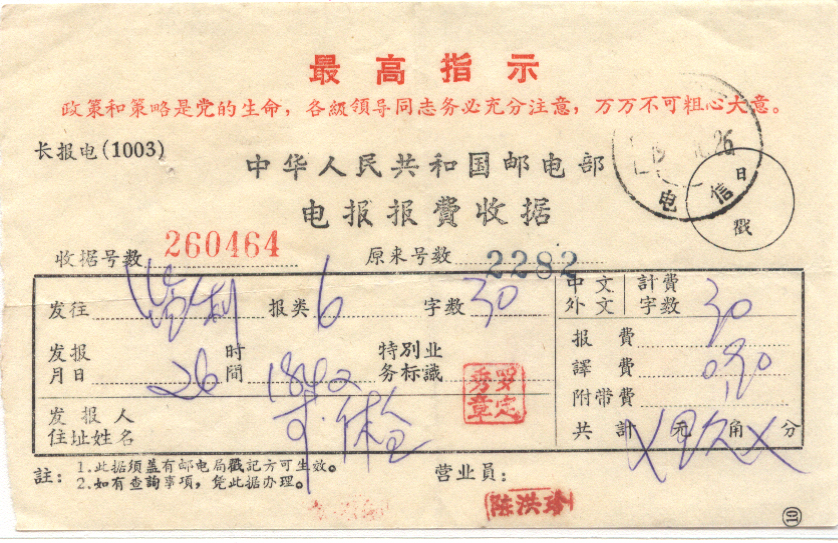 最高指示
政策和策略是党的生命，各級领导同志务必充分注意，万万不可粗心大意。
长报电(1003)
中华人民共和国邮电部
电报报費收据
26
电信
日戳
收据号数 260464 原来号数 2282
发往 报类 6 字数 30
中文 外文 計費字数 30
发报月日 26 时間 1842 特別业务标識
报費
譯費
附带費
发报人住址姓名
共計 元 角 分
罗定秀章
註：1.此据須盖有邮电局戳記方可生效。
2.如有查詢事項，凭此据办理。
营业员：
陈洪珍